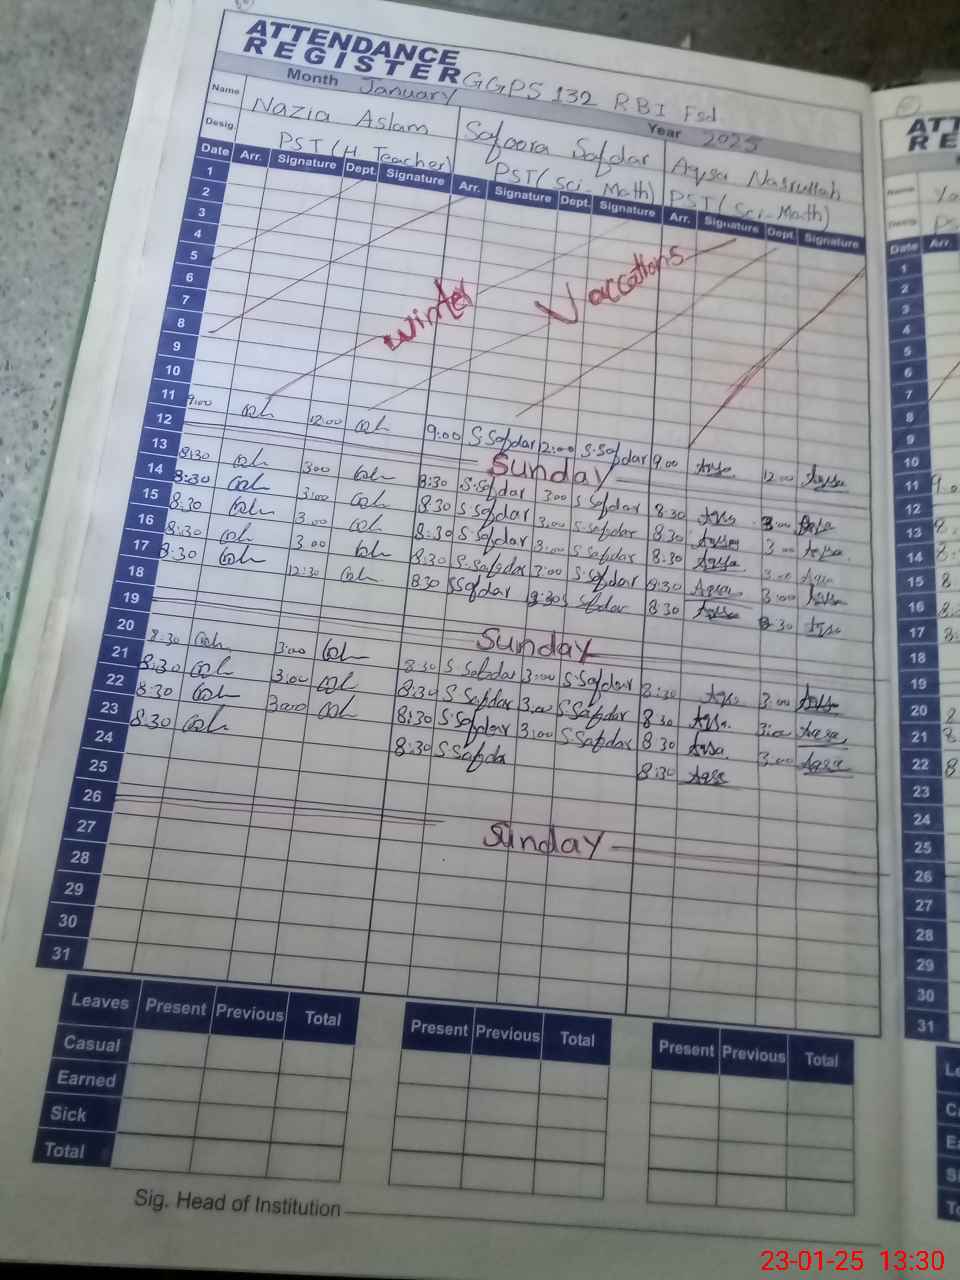 ATTENDANCE
REGISTER GGPS 132 R.B I Fsd.
Month January Year 2025
Name Nazia Aslam Safoora Safdar Aqsa Nasrullah
Desig. PST (H. Teacher) PST (Sci-Math) PST (Sci-Math)
Date Arr. Signature Dept. Signature Arr. Signature Dept. Signature Arr. Signature Dept. Signature
1
2
3
4
5
6
7
8
9
10
Winter Vaccations
11 9:00 12:00 9:00 S.Safdar 12:00 S.Safdar 9:00 Aqsa 12:00 Aqsa
12 Sunday
13 8:30 3:00 8:30 S.Safdar 3:00 S.Safdar 8:30 Aqsa 3:00 Aqsa
14 8:30 3:00 8:30 S.Safdar 3:00 S.Safdar 8:30 Aqsa 3:00 Aqsa
15 8:30 3:00 8:30 S.Safdar 3:00 S.Safdar 8:30 Aqsa 3:00 Aqsa
16 8:30 3:00 8:30 S.Safdar 3:00 S.Safdar 8:30 Aqsa 3:00 Aqsa
17 8:30 12:30 8:30 S Safdar S Safdar 8:30 Aqsa Aqsa
18
19 Sunday
20 8:30 3:00 8:30 S.Safdar 3:00 S.Safdar 8:30 Aqsa 3:00 Aqsa
21 8:30 3:00 8:30 S.Safdar 3:00 S.Safdar 8:30 Aqsa 3:00 Aqsa
22 8:30 3:00 8:30 S.Safdar 3:00 S.Safdar 8:30 Aqsa 3:00 Aqsa
23 8:30 8:30 S.Safda 8:30 Aqsa
24
25
26 Sunday
27
28
29
30
31
Leaves Present Previous Total Present Previous Total Present Previous Total
Casual
Earned
Sick
Total
Sig. Head of Institution
Date Arr.
1
2
3
4
5
6
7
8
9
10
11
12
13
14
15
16
17
18
19
20
21
22
23
24
25
26
27
28
29
30
31
23-01-25 13:30